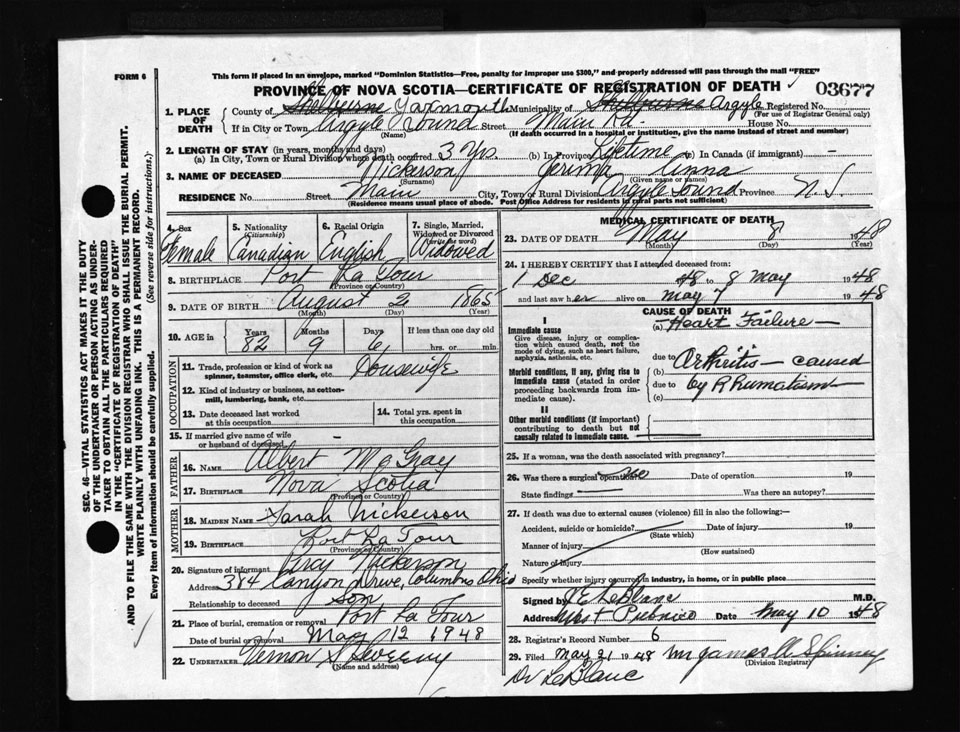 FORM 6
This form if placed in an envelope, marked "Dominion Statistics—Free, penalty for improper use $300," and properly addressed will pass through the mail "FREE"
PROVINCE OF NOVA SCOTIA—CERTIFICATE OF REGISTRATION OF DEATH 03677
1. PLACE OF DEATH County of Shelburne Yarmouth Municipality of Shelburne Argyle Registered No.
(For use of Registrar General only)
If in City or Town Argyle Sound Street Main Rd. House No.
(Name) (If death occurred in a hospital or institution, give the name instead of street and number)
2. LENGTH OF STAY (in years, months and days)
(a) In City, Town or Rural Division where death occurred 3 Yrs. (b) In Province Lifetime (c) In Canada (if immigrant) —
3. NAME OF DECEASED Nickerson Jerima Anna
(Surname) (Given name or names)
RESIDENCE No. Street Main City, Town or Rural Division Argyle Sound Province N.S
(Residence means usual place of abode. Post Office Address for residents in rural parts not sufficient)
4. Sex Female
5. Nationality (Citizenship) Canadian
6. Racial Origin English
7. Single, Married, Widowed or Divorced (write the word) Widowed
8. BIRTHPLACE Port La Tour
(Province or Country)
9. DATE OF BIRTH August 2 1865
(Month) (Day) (Year)
10. AGE in Years 82 Months 9 Days 6 If less than one day old hrs. or min.
OCCUPATION
11. Trade, profession or kind of work as spinner, teamster, office clerk, etc. Housewife
12. Kind of industry or business, as cotton-mill, lumbering, bank, etc.
13. Date deceased last worked at this occupation
14. Total yrs. spent in this occupation
15. If married give name of wife or husband of deceased —
FATHER
16. NAME Albert McGray
17. BIRTHPLACE Nova Scotia
(Province or Country)
MOTHER
18. MAIDEN NAME Sarah Nickerson
19. BIRTHPLACE Port La Tour
(Province or Country)
20. Signature of informant Nickerson
Address 384 Canyon Drive, Columbus Ohio
Relationship to deceased Son
21. Place of burial, cremation or removal Port La Tour
Date of burial or removal May 12 1948
22. UNDERTAKER Vernon S Sweeny
(Name and address)
MEDICAL CERTIFICATE OF DEATH
23. DATE OF DEATH May 8 1948
(Month) (Day) (Year)
24. I HEREBY CERTIFY that I attended deceased from:
1 Dec 48 to 8 May 1948
and last saw her alive on May 7 1948
CAUSE OF DEATH
I
Immediate cause
Give disease, injury or complication which caused death, not the mode of dying, such as heart failure, asphyxia, asthenia, etc.
(a) — Heart Failure —
due to
Morbid conditions, if any, giving rise to immediate cause (stated in order proceeding backwards from immediate cause).
(b) Arthritis — caused
due to by Rhumatism
(c)
II
Other morbid conditions (if important) contributing to death but not causally related to immediate cause.
25. If a woman, was the death associated with pregnancy?
26. Was there a surgical operation? no Date of operation 19
State findings — Was there an autopsy?
27. If death was due to external causes (violence) fill in also the following:—
Accident, suicide or homicide? Date of injury 19
(State which)
Manner of injury
(How sustained)
Nature of injury
Specify whether injury occurred in industry, in home, or in public place
Signed by J E LeBlanc M.D.
Address West Pubnico Date May 10 1948
28. Registrar's Record Number 6
29. Filed May 21 1948 Mr James A Spinney
(Division Registrar)
Dr LeBlanc
SEC. 46—VITAL STATISTICS ACT MAKES IT THE DUTY OF THE UNDERTAKER OR PERSON ACTING AS UNDERTAKER TO OBTAIN ALL THE PARTICULARS REQUIRED IN THE "CERTIFICATE OF REGISTRATION OF DEATH" AND TO FILE THE SAME WITH THE DIVISION REGISTRAR WHO SHALL ISSUE THE BURIAL PERMIT.
WRITE PLAINLY WITH UNFADING INK. THIS IS A PERMANENT RECORD.
Every item of information should be carefully supplied. (See reverse side for instructions.)